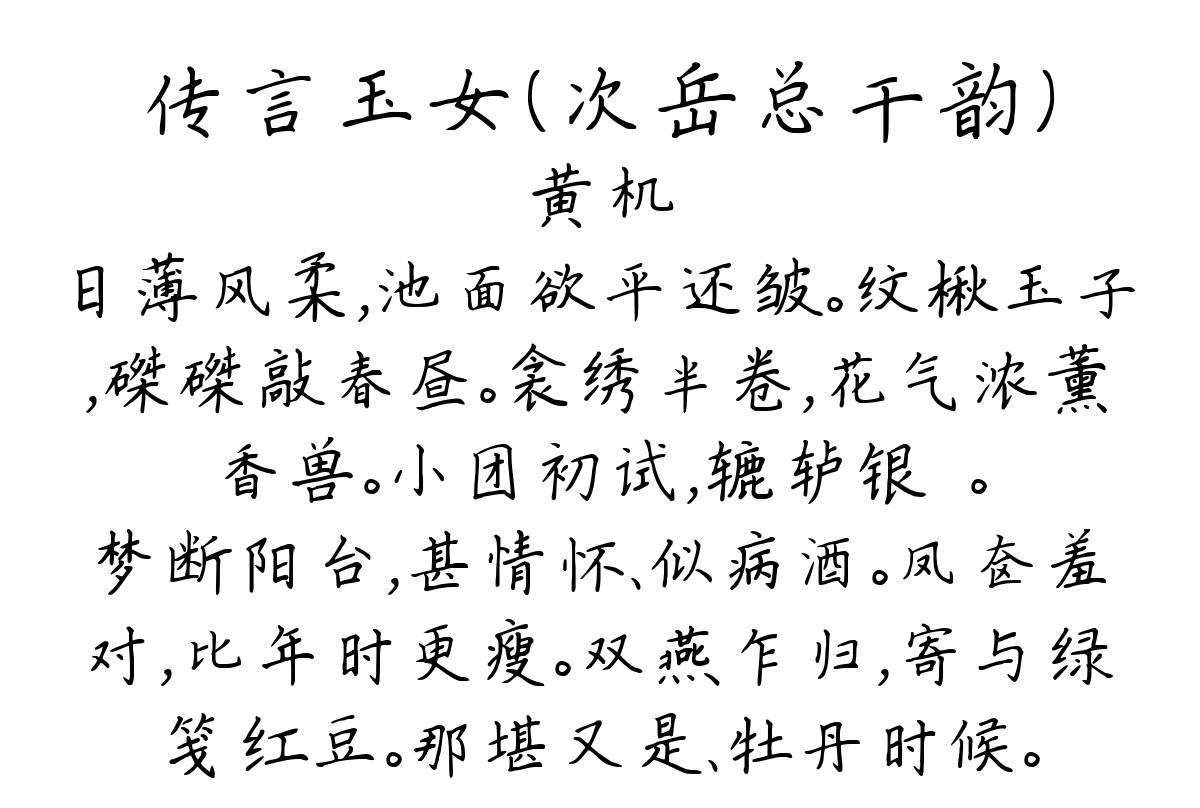 传言玉女(次岳总干韵)
黄机
日薄风柔,池面欲平还皱。纹楸玉子
,磔磔敲春昼。衾绣半卷,花气浓薰
香兽。小团初试,辘轳银 。
梦断阳台,甚情怀、似病酒。凤奁羞
对,比年时更瘦。双燕乍归,寄与绿
笺红豆。那堪又是、牡丹时候。